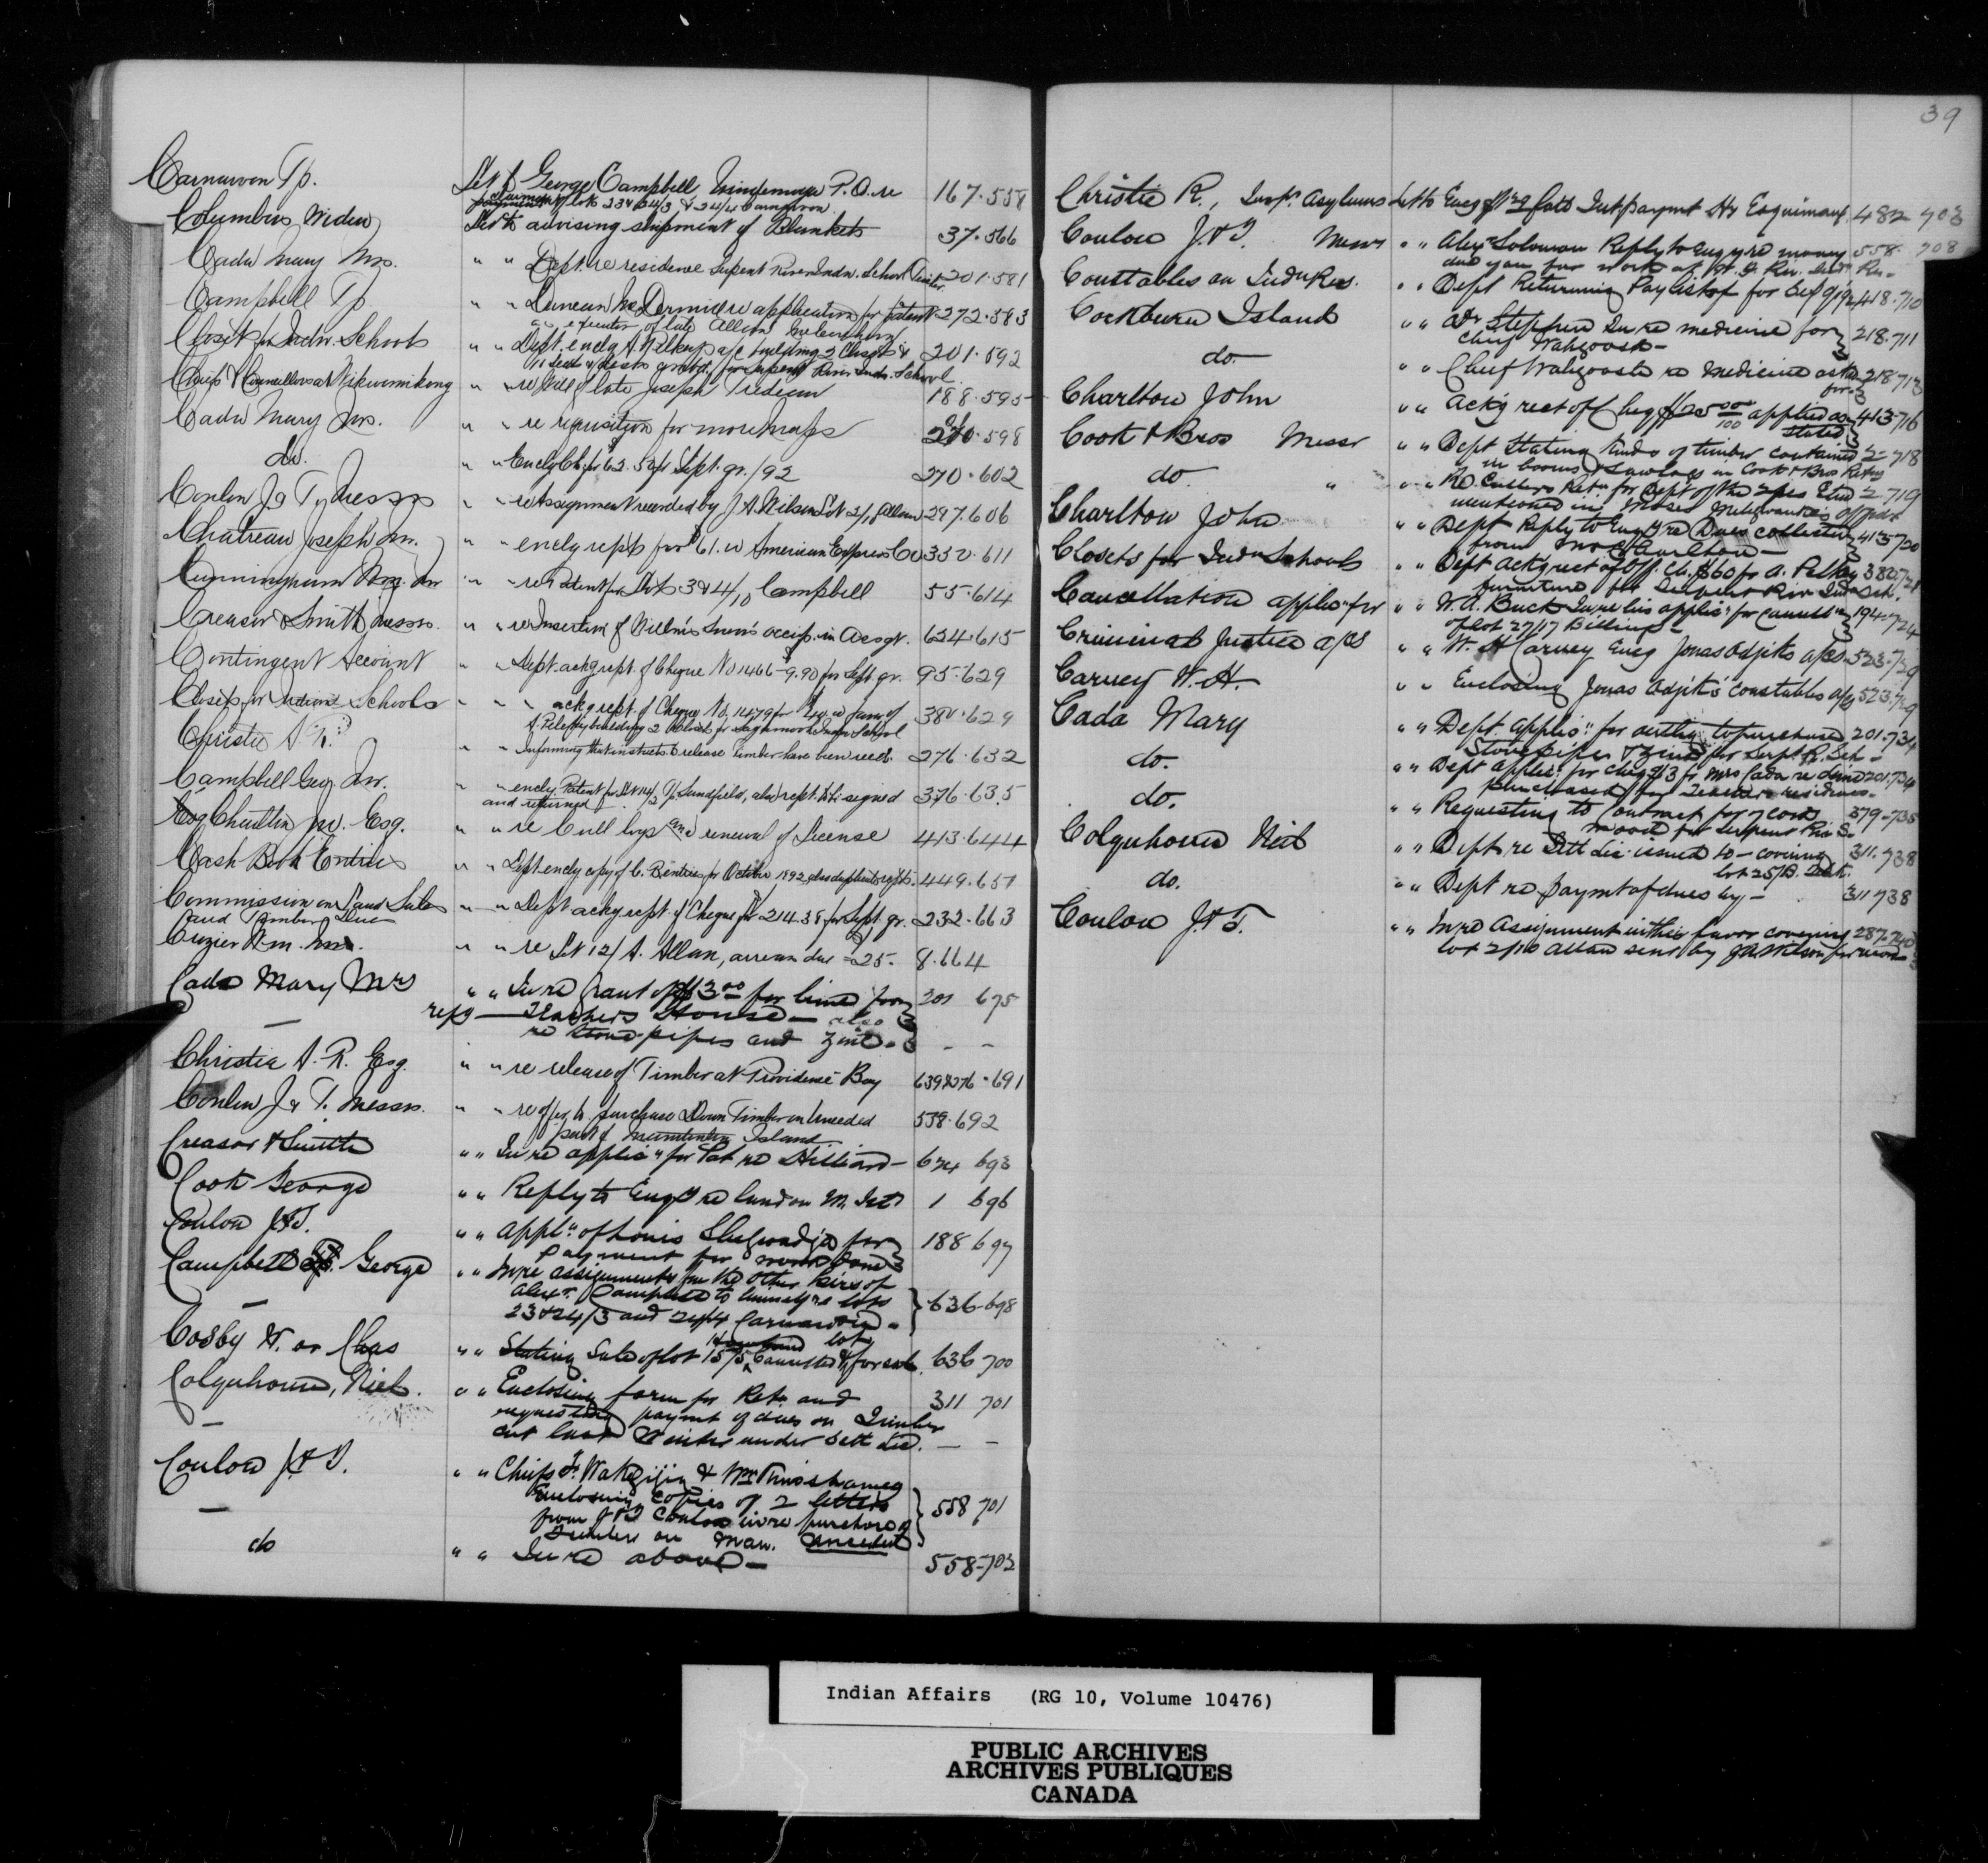 39
Carnarvon Tp. Let to George Campbell P.O. re 167.558
payment of lots 23 & 24/3 & 24/4 Carnarvon
Columbus Widow Let to advising shipment of Blankets 37.566
Cada Mary Mrs. " " Dept. re residence Serpent River Indn. School 201.581
Campbell Tp " " Duncan McDermid re application for Patent 272.583
as executor of late Allan
Closet for Indn. Schools " " Dept. encly a/c building 2 Closets & 201.592
desks for Serpent River Indn. School
Chiefs & Councillors at Wikwemikong " " re will of late Joseph Trudeau 188.595
Cada Mary Mrs. " " re requisition for more maps 598
do. " " Encly Ch. for 62.50 for Sept. qr. /92 270.602
Conlon J & T. Messrs " " re Assignment recorded by J. A. Wilson Lot 2/10 Allan 297.606
Chatreau Joseph Mr. " " encly repts for $61. American Express Co 611
Cunningham Mr " " re Patent for Lots 3 & 4/10 Campbell 55.614
Creasor & Smith Messrs. " " re Insertion of occup. in Assgt. 624.615
Contingent Account " " Dept. ackg rept. of Cheque No 1466 - 9.90 for Sept qr. 95.629
Closets for Indian Schools " " ackg rept. of Cheque No. for favor of 380.629
building 2 Closets for Indn School
Christie A. R. " " informing that instructs to release Timber have been recd. 276.632
Campbell Geo. Mr. " " encly Patent for Sandfield, also rept. to be signed 376.635
and returned
Charlton Jno. Esq. " " re Cull logs and renewal of License 413.644
Cash Book Entries " " Dept encly copy of C. B entries for October 1892, also duplicate repts. 449.657
Commission on Land Sales " " Dept ackg rept. of Cheque for 214.38 for Sept. qr. 232.663
and Timber Dues
Crozier Wm. Mr. " " re Lot 12/A. Allan, arrears due $25. 8.664
Cada Mary Mrs " " In re Grant of $3.00 for lime for 201 675
repg — Teachers House — also
re stove pipes and zinc — —
Christie A. R. Esq. " " re release of Timber at Providence Bay 639&276.691
Conlon J & T. Messrs. " " re offer to purchase Down Timber on Unceded 558.692
part of Manitoulin Island
Creasor & Smith " " In re applicn for Pat re Hilliard — 624 693
Cook George " " Reply to Enqy re land on M. Isld 1 696
Conlon J&T. " " Appln of Louis for 188 697
Payment for work done
Campbell George " " In re assignments from the other heirs of
Alexr. Campbell to himself re lots
23 & 24/3 and 24/4 Carnarvon — 636-698
Cosby W. or Chas " " Stating Sale of lot 15/5 Cancelled & lot for sale 636 700
Colquhoun, Niel. " " Enclosing form for Retn. and 311 701
requesting paymt of dues on Timber
cut last Winter under Sett Lic. — —
Conlon J & T. " " Chiefs & Wm Kinoshameg
Enclosing copies of 2 letters 558 701
from J & T Conlon in re purchase of
Timber on Man. Unceded
do " " In re above — 558-702
Christie R., Inspr. Asylums Let to Encg 482 703
Conlon J. & T. Messrs " " Alex Solomon Reply to Enqy re money 558. 708
due you for work at Res.
Constables on Indn Res. " " Dept Returning Paylist for 418.710
Cockburn Island " " Dr Stephen In re medicine for 218.711
Chief Wahgoosh —
do — " " Chief Wahgoosh re medicine asked 218.713
for
Charlton John " " Ackg rect of Cheq $25 00/100 applied as 413.716
stated
Cook & Bros Messrs " " Dept Stating kinds of timber contained 2-718
in booms & sawlogs in Cook & Bros Retns
do " " " 2-719
mentioned in
Charlton John " " Dept Reply to Enqy re Dues collected 413-720
from Jno Charlton —
Closets for Indn Schools " " Dept ackg rect of Off. Ch. $60 for 380.721
furniture for Serpent Riv Ind Sch.
Cancellation applicn for " " W. A. Buck In re his applicn for cancelln 194-724
of lot 27/17 Billings —
Criminal Justice a/cs " " W. H Carney Encg Jonas Odjik's a/cs 523-729
Carney W. H. " " Enclosing Jonas Odjik's constables a/c 523-729
Cada Mary " " Dept. applicn for authy to purchase 201.734
Stovepipes & Zinc for Serpt. R. Sch —
do. " " Dept applicn for Cheq $3 fr Mrs Cada re lime 201.734
purchased for Teachers residence.
do. " " Requesting to contract for 7 cord 379-735
wood for Serpent Riv S.
Colquhoun Niel " " Dept re Sett Lic. issued to — covering 311.738
do. " " Dept re paymt of dues by — 311 738
Conlon J. & T. " " In re assignment in their favor covering 287-740
lot 2/10 Allan sent by J A Wilson for record
Indian Affairs (RG 10, Volume 10476)
PUBLIC ARCHIVES
ARCHIVES PUBLIQUES
CANADA